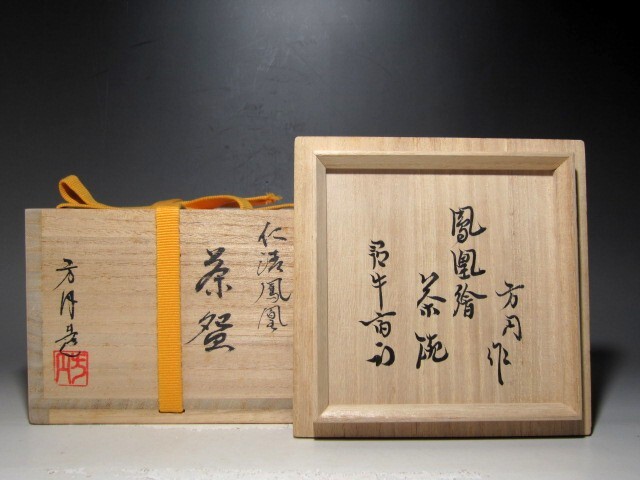 仁清鳳凰
茶盌
方円造
方円
方円作
鳳凰繪
茶碗